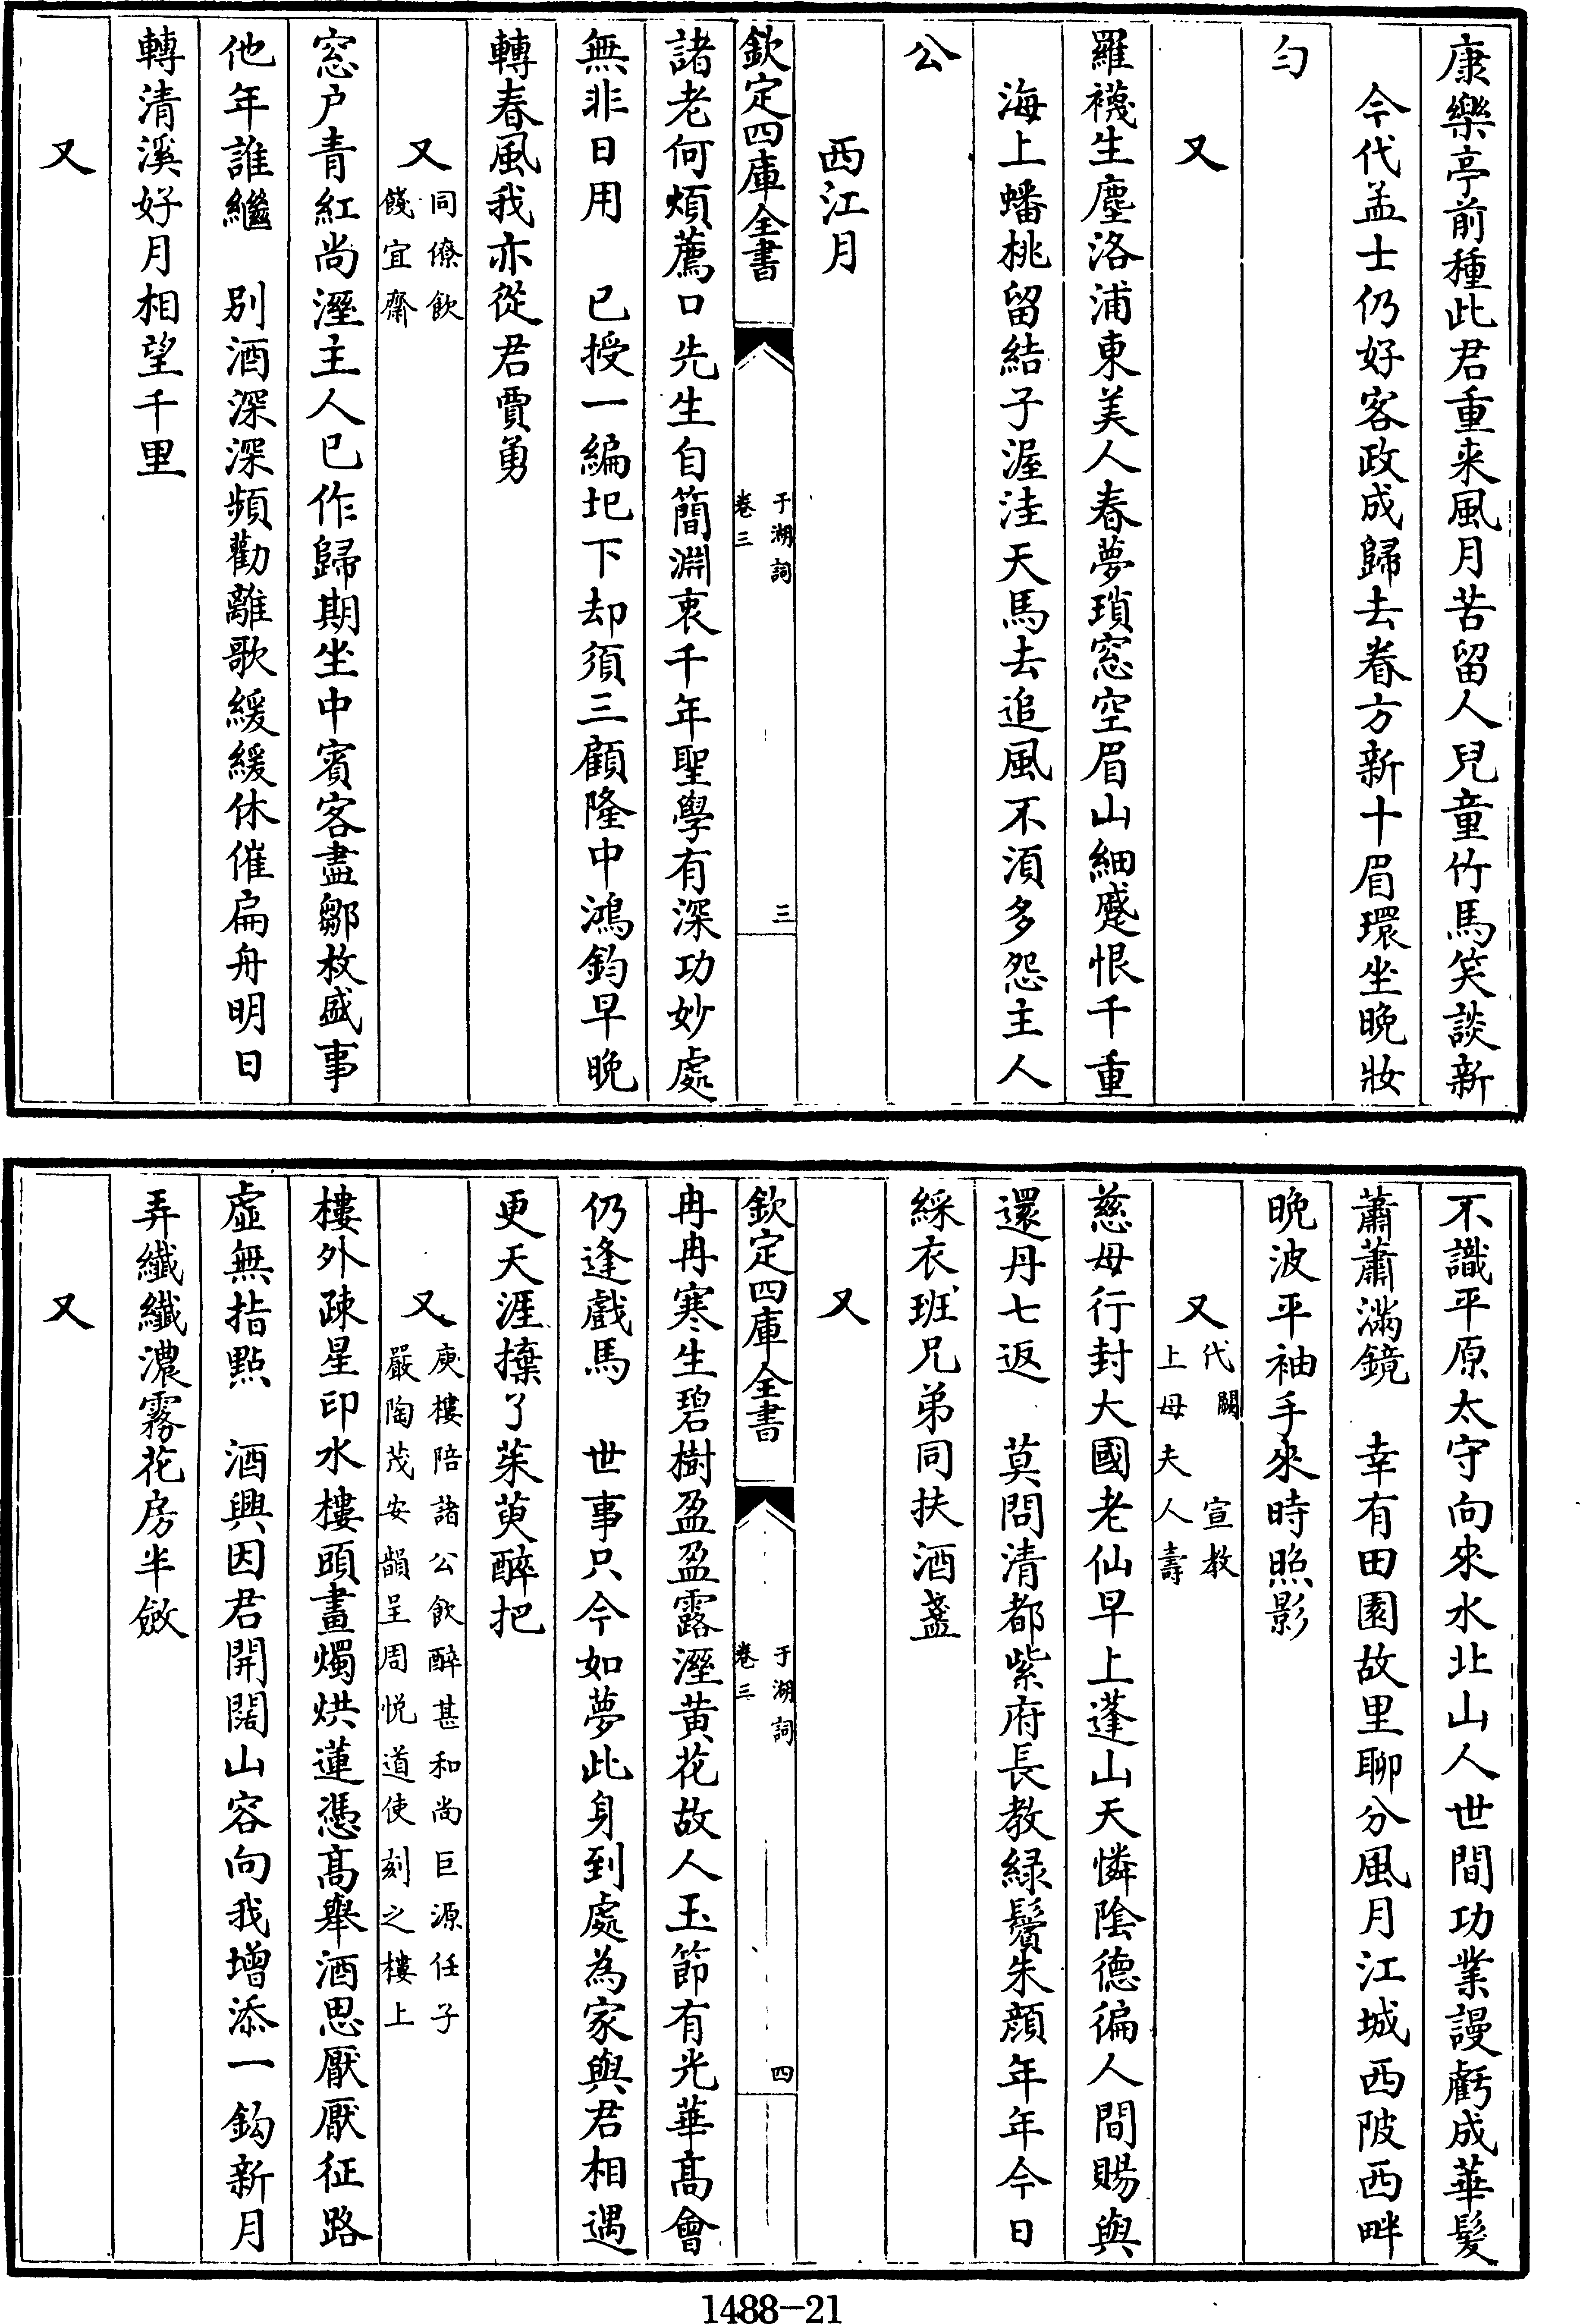 康樂亭前種此君重來風月苦留人兒童竹馬笑談新
今代孟士仍好客政成歸去眷方新十眉環坐晚妝
勻
又
羅襪生塵洛浦東美人春夢瑣窓空眉山細蹙恨千重
海上蟠桃留結子渥洼天馬去追風不湏多怨主人
公
西江月
欽定四庫全書
于湖詞
卷三
三
諸老何煩薦口先生自簡淵衷千年聖學有深功妙處
無非日用　已授一編圯下却須三顧隆中鴻鈞早晚
轉春風我亦從君賈勇
又
同僚飲
餞宜齋
窓户青紅尚溼主人已作歸期坐中賓客盡鄒枚盛事
他年誰繼　別酒深深頻勸離歌緩緩休催扁舟明日
轉清溪好月相望千里
又
不識平原太守向來水北山人世間功業謾虧成華髮
蕭蕭滿鏡　幸有田園故里聊分風月江城西陂西畔
晚波平袖手來時照影
又
代闕　宣教
上母夫人壽
慈母行封大國老仙早上蓬山天憐隂德徧人間賜與
還丹七返　莫問清都紫府長教緑鬢朱顔年年今日
綵衣班兄弟同扶酒盞
又
欽定四庫全書
于湖詞
卷三
四
冉冉寒生碧樹盈盈露溼黄花故人玉節有光華髙會
仍逢戲馬　世事只今如夢此身到處為家與君相遇
更天涯㧞了茱萸醉把
又
庾樓陪諸公飲醉甚和尚巨源任子
嚴陶茂安韻呈周悅道使刻之樓上
樓外疎星印水樓頭畫燭烘蓮憑髙舉酒思厭厭征路
虚無指點　酒興因君開闊山容向我增添一鈎新月
弄纖纖濃霧花房半斂
又
1488—21